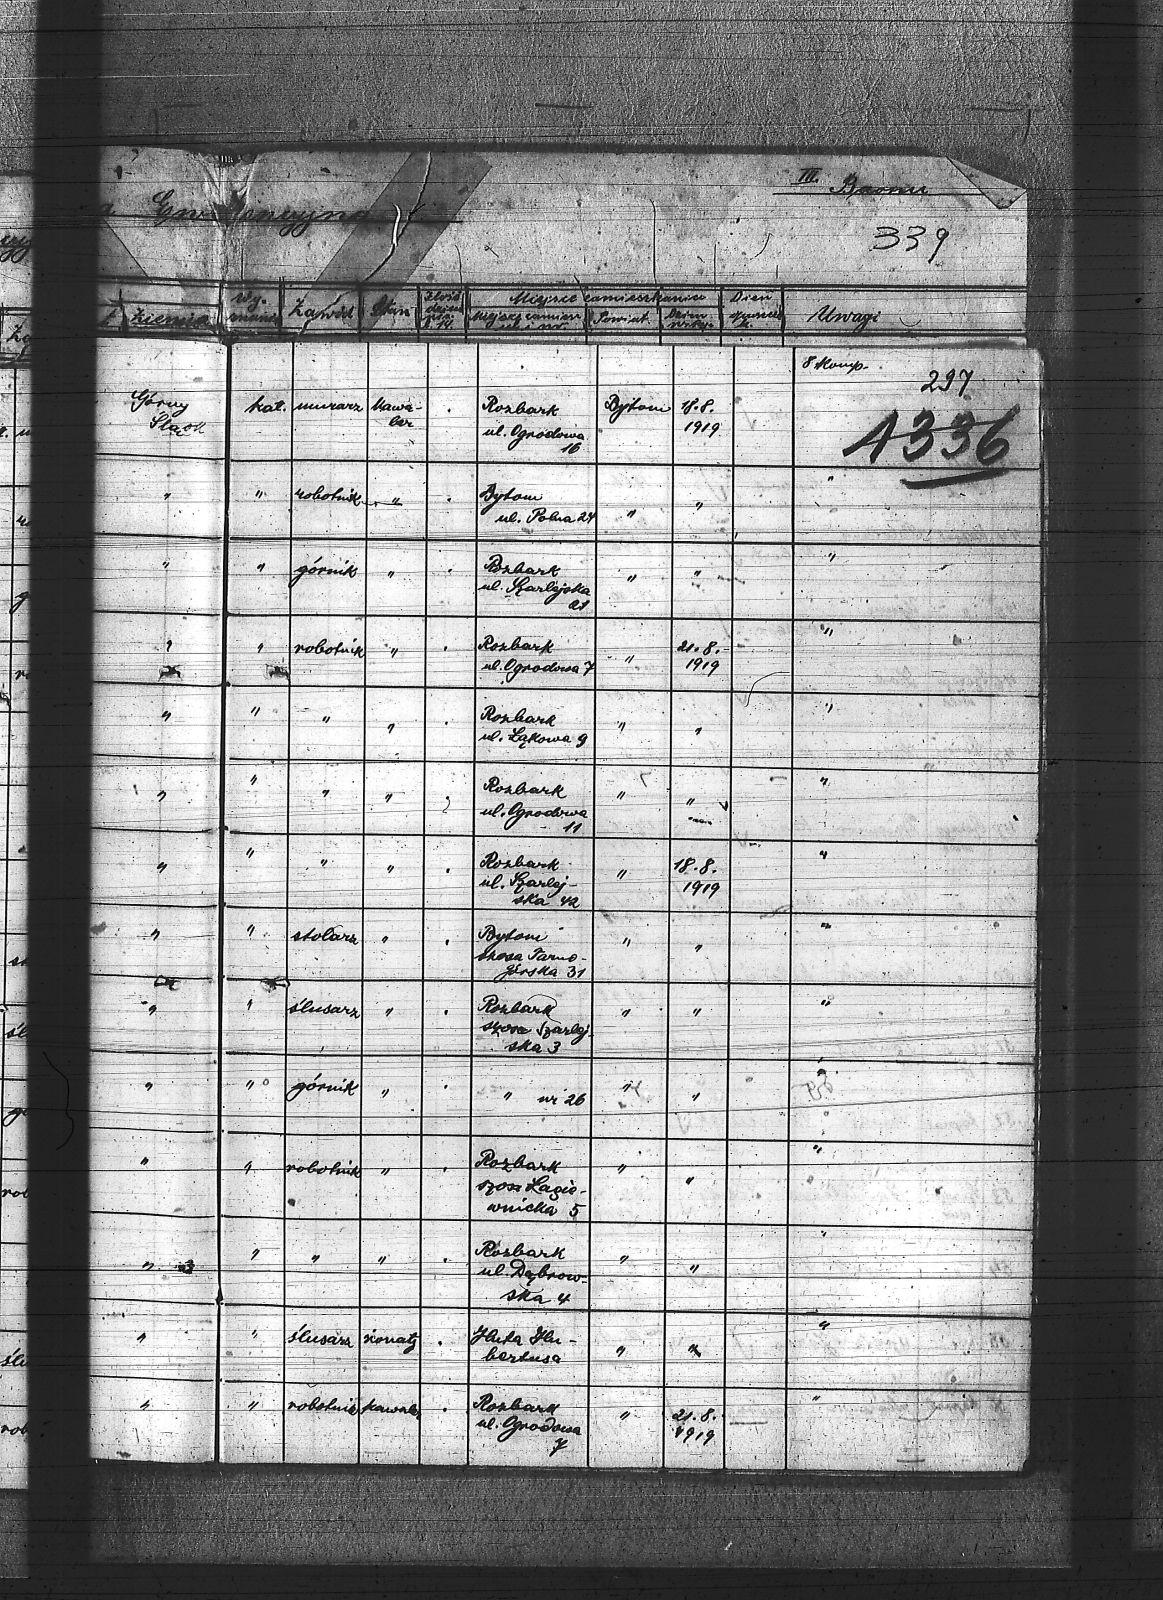 III. Baonu
339
ziemia
Zawód
Stan
Miejsce zamieszkania
Powiat
Dzień
Uwagi
8 Komp.
297
Górny Śląsk kat. murarz Kawaler Rozbark Bytom 18.8.
ul. Ogrodowa 1919
16
1336
" " robotnik " Bytom " " "
ul. Polna 24
" " górnik " Rozbark " " "
ul. Szarlejska
21
" " robotnik " Rozbark " 21.8. "
ul. Ogrodowa 7 1919
" " " " Rozbark " " "
ul. Łąkowa 9
" " " " Rozbark " " "
ul. Ogrodowa
11
" " " " Rozbark " 18.8. "
ul. Szarlej- 1919
ska 42
" " stolarz " Bytom " " "
szosa Tarno-
górska 31
" " ślusarz " Rozbark " " "
szosa Szarlej-
ska 3
" " górnik " " nr 26 " " "
" " robotnik " Rozbark " " "
szosa Łagie-
wnicka 5
" " " " Rozbark " " "
ul. Dąbrow-
ska 4
" " ślusarz żonaty Huta Hu- " " "
bertusa
" " robotnik kawaler Rozbark " 21.8. "
ul. Ogrodowa 1919
7